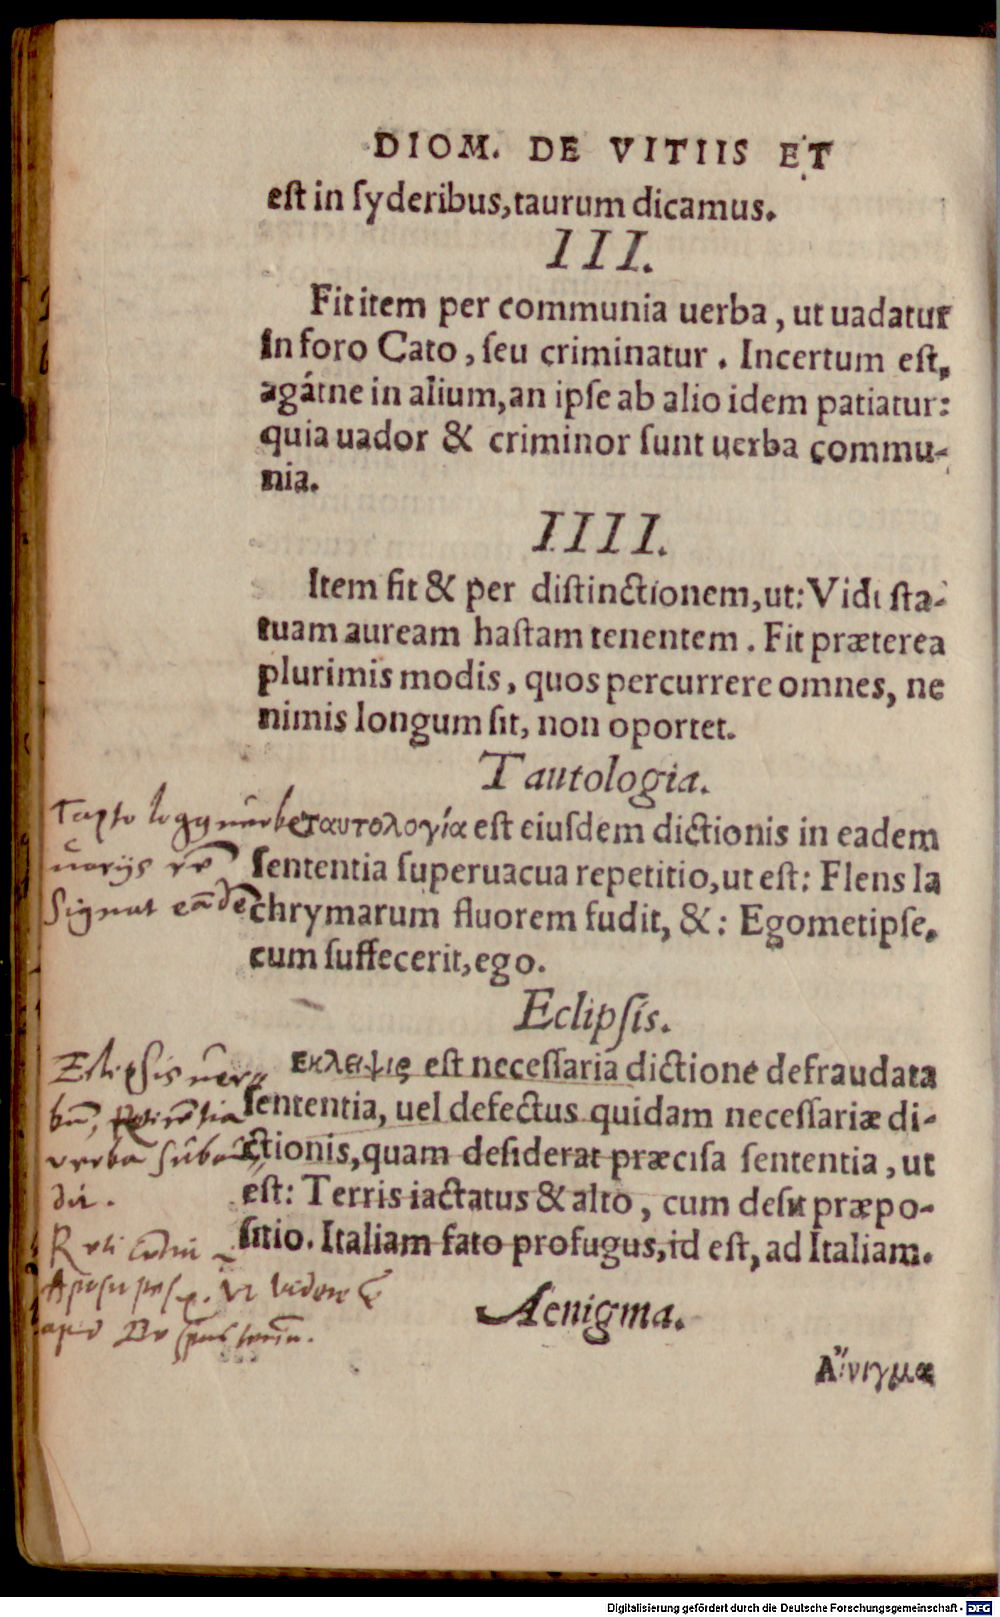 DIOM. DE VITIIS ET
est in syderibus,taurum dicamus.
III.
Fit item per communia uerba, ut uadatur
in foro Cato, seu criminatur. Incertum est,
agátne in alium,an ipse ab alio idem patiatur:
quia uador & criminor sunt uerba commu-
nia.
IIII.
Item fit & per distinctionem,ut: Vidi sta-
tuam auream hastam tenentem. Fit præterea
plurimis modis, quos percurrere omnes, ne
nimis longum sit, non oportet.
Tautologia.
ταυτολογία est eiusdem dictionis in eadem
sententia superuacua repetitio,ut est: Flens la
chrymarum fluorem fudit, &: Egometipse,
cum suffecerit,ego.
Signat
Eclipsis.
Εκλειψις est necessaria dictione defraudata
sententia, uel defectus quidam necessariæ di-
ctionis,quam desiderat præcisa sententia, ut
est: Terris iactatus & alto, cum desit præpo-
sitio. Italiam fato profugus,id est, ad Italiam.
Eclipsis
verba
Aenigma.
Αἴνιγμα
Digitalisierung gefördert durch die Deutsche Forschungsgemeinschaft - DFG